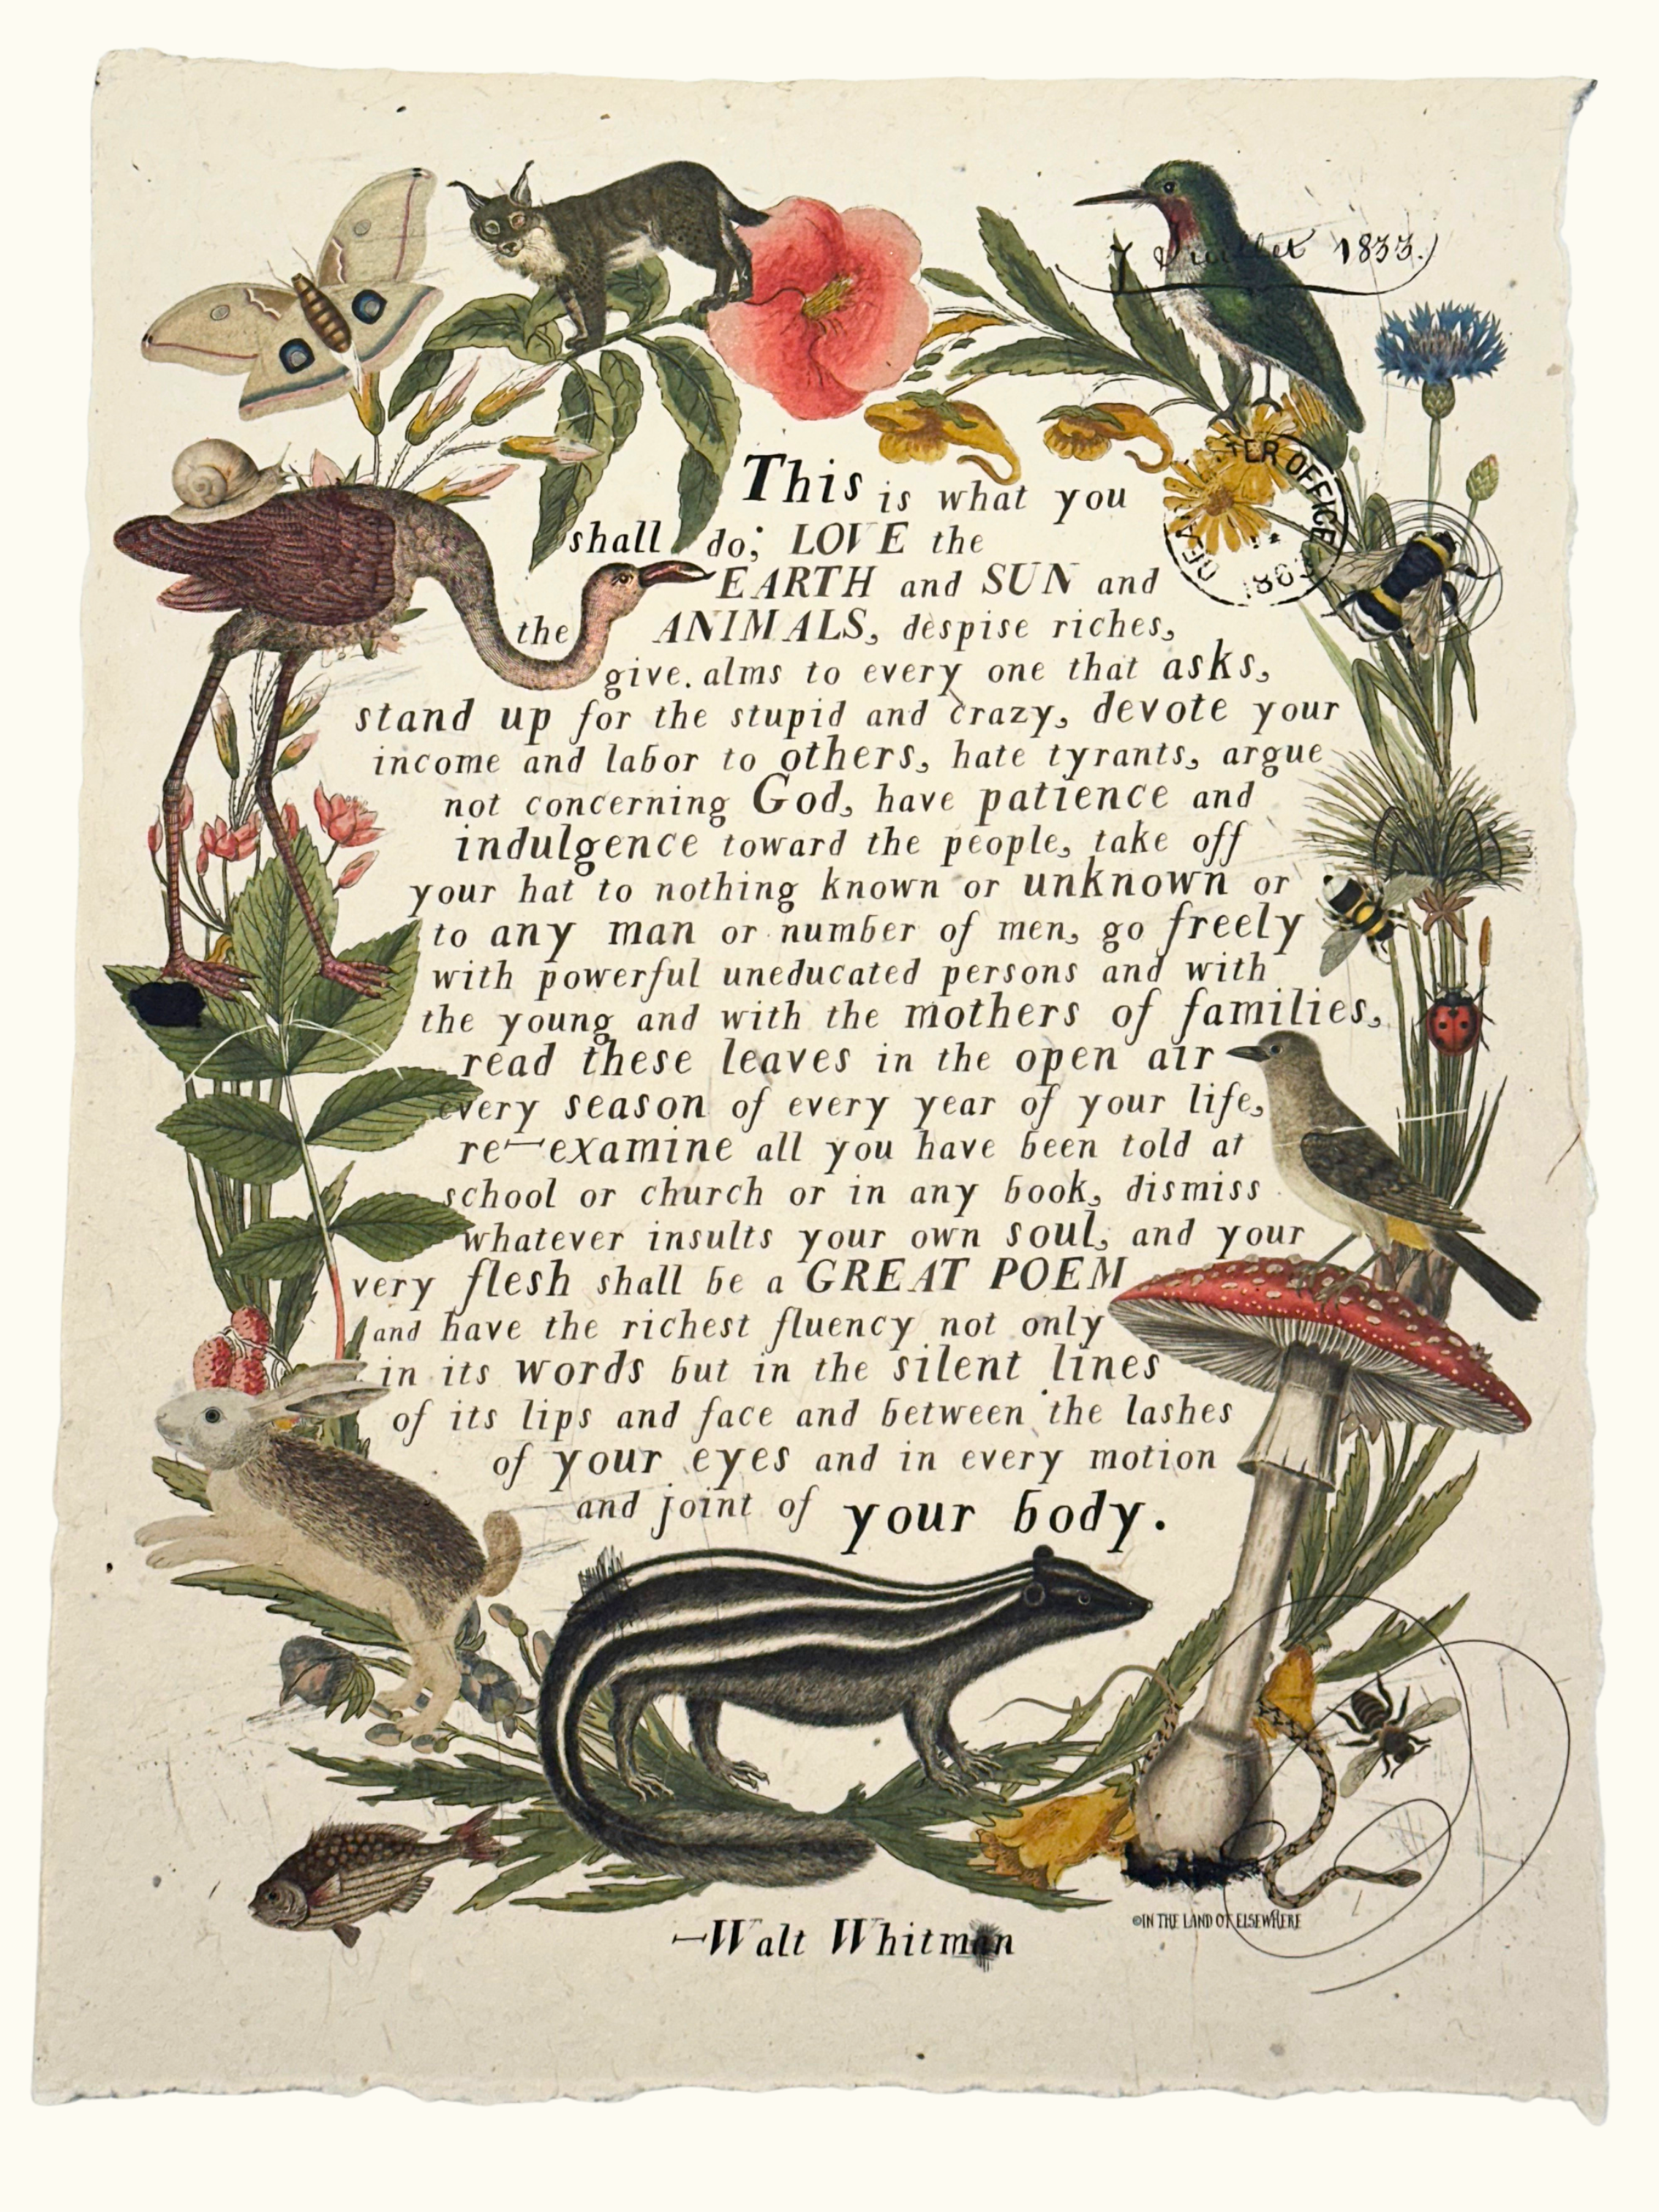 7 Juillet 1833.)
TER OFFICE
DEA
186
This is what you
shall do; LOVE the
EARTH and SUN and
the ANIMALS, despise riches,
give alms to every one that asks,
stand up for the stupid and crazy, devote your
income and labor to others, hate tyrants, argue
not concerning God, have patience and
indulgence toward the people, take off
your hat to nothing known or unknown or
to any man or number of men, go freely
with powerful uneducated persons and with
the young and with the mothers of families,
read these leaves in the open air
every season of every year of your life,
re-examine all you have been told at
school or church or in any book, dismiss
whatever insults your own soul, and your
very flesh shall be a GREAT POEM
and have the richest fluency not only
in its words but in the silent lines
of its lips and face and between the lashes
of your eyes and in every motion
and joint of your body.
—Walt Whitman
©IN THE LAND OF ELSEWHERE